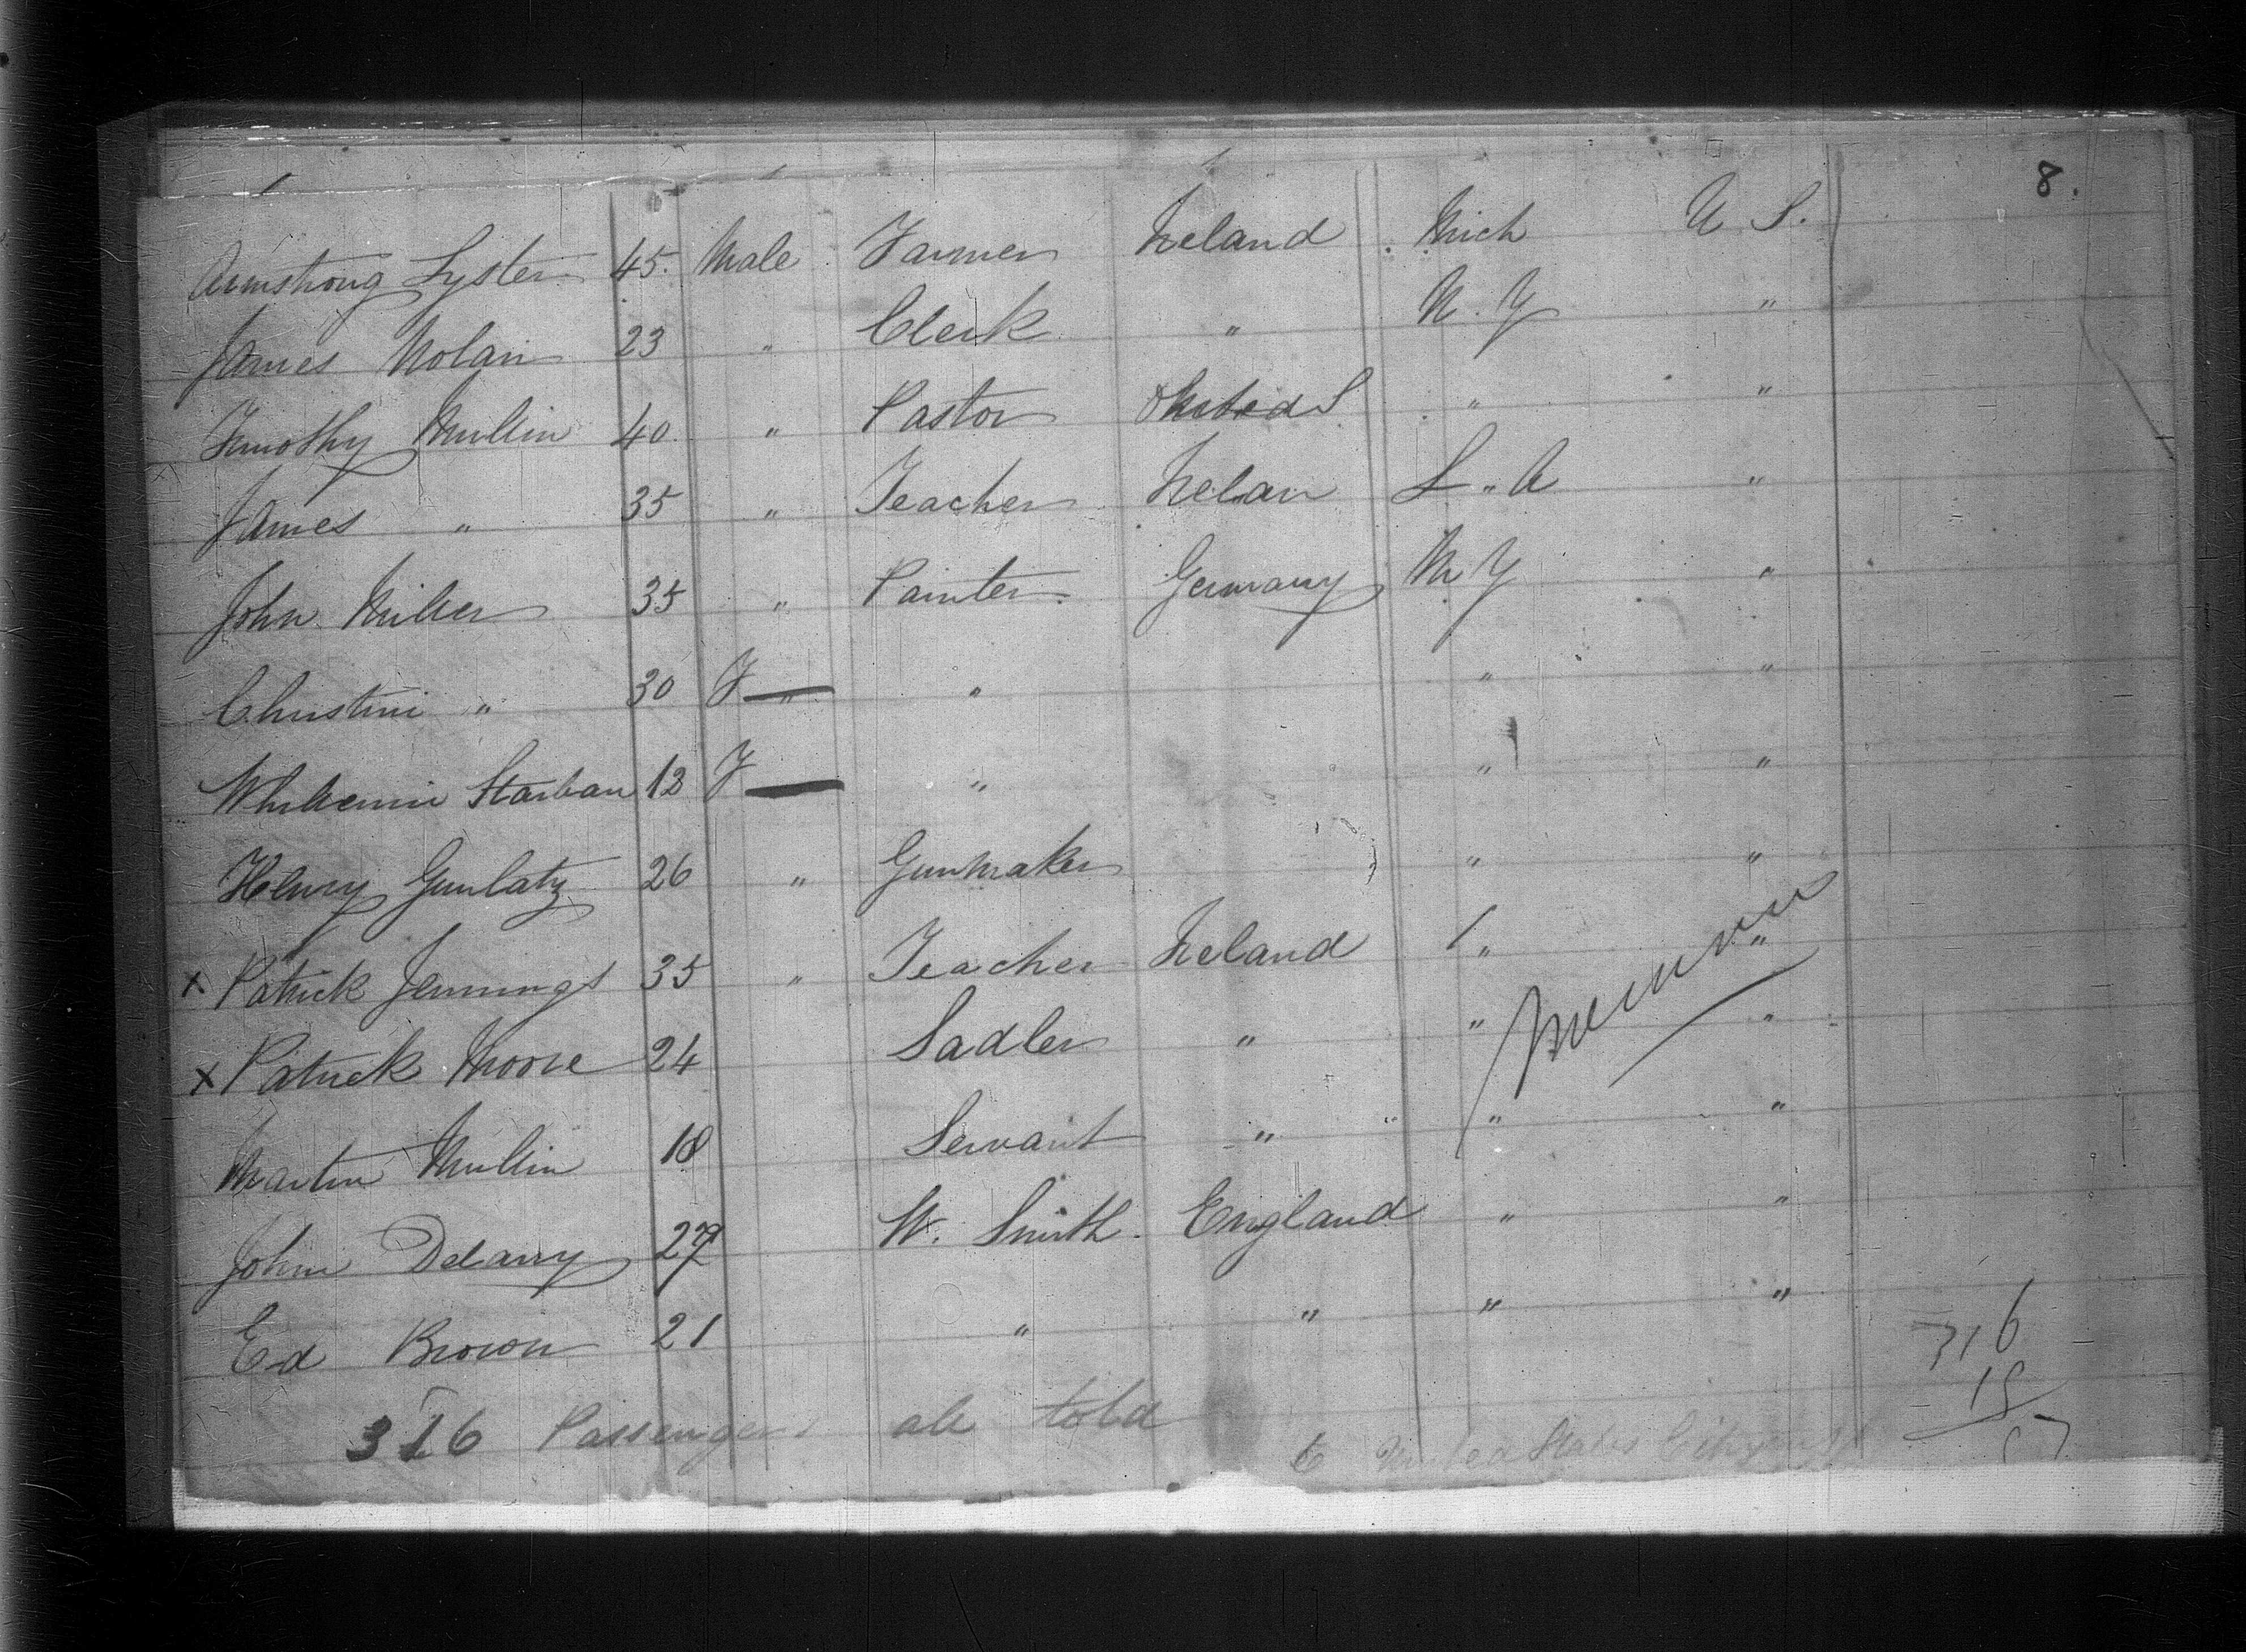 8.
Armstrong Lyster 45. Male Farmer Ireland Mich U S.
James Nolan 23 " Clerk " N. Y "
Timothy Mullin 40 " Pastor S " "
James " 35 " Teacher Irelan "
John Miller 35 " Painter Germany N Y "
Christini " 30 F " " " "
Starban F " " "
Henry Gunlatz 26 " Gunmaker " "
x Patrick Jennings 35 " Teacher Ireland " "
x Patrick Moore 24 Sadler " " "
Martin Mullin 18 Servant " " "
John Delany 27 W. Smith. England " "
Ed Brown 21 " " " "
316
316 Passengers all told United States Citizens